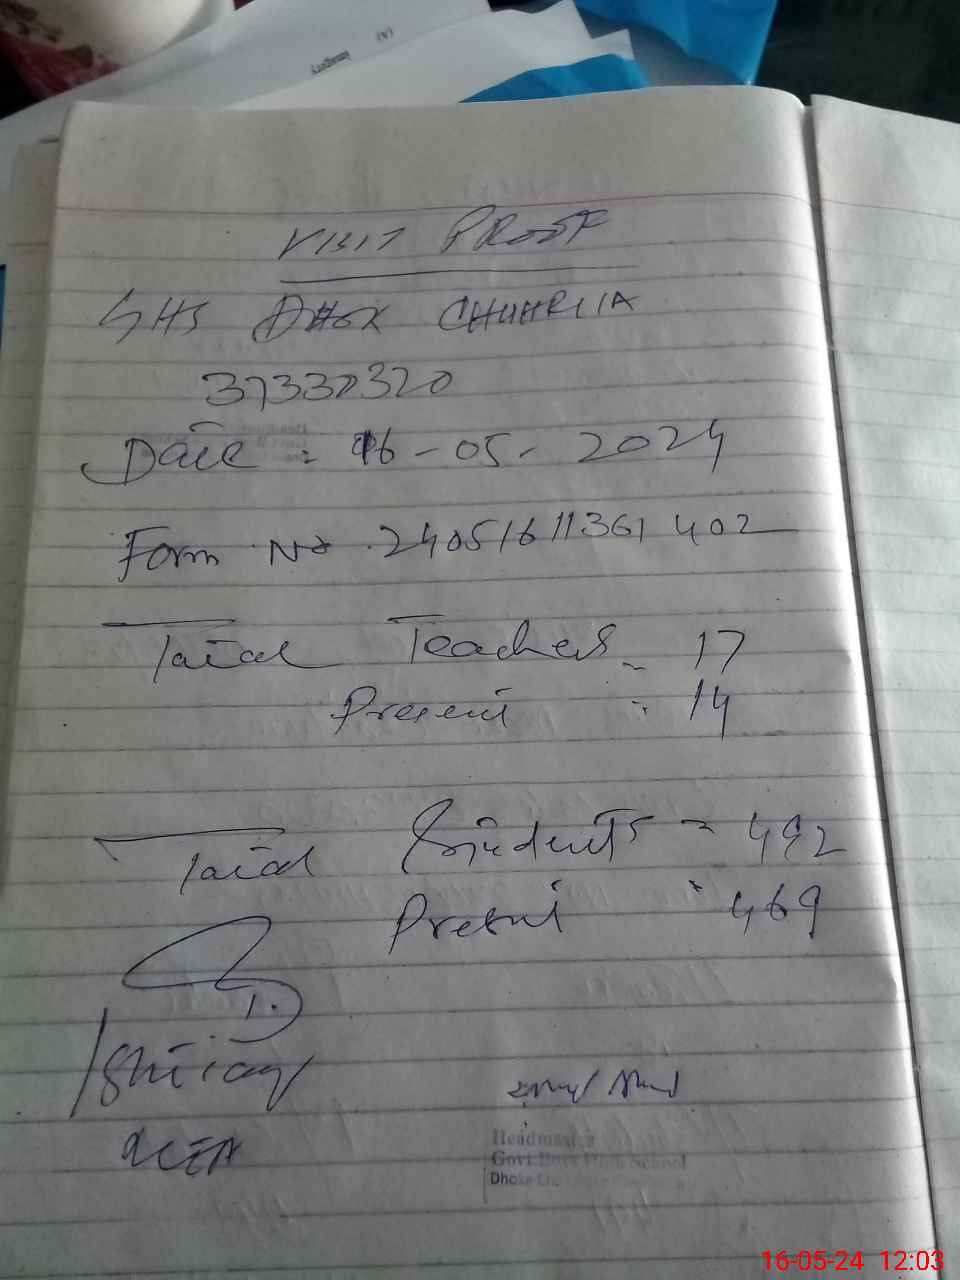 (v)
VISIT PROOF
GHS DHOK CHUHRIIA
37330320
Date : 16-05-2024
Form No. 24051611361402
Total Teachers = 17
Present : 14
Total Students = 492
Present : 469
Ishtiaq
Headmaster
Govt Boys High School
Dhoke
16-05-24 12:03